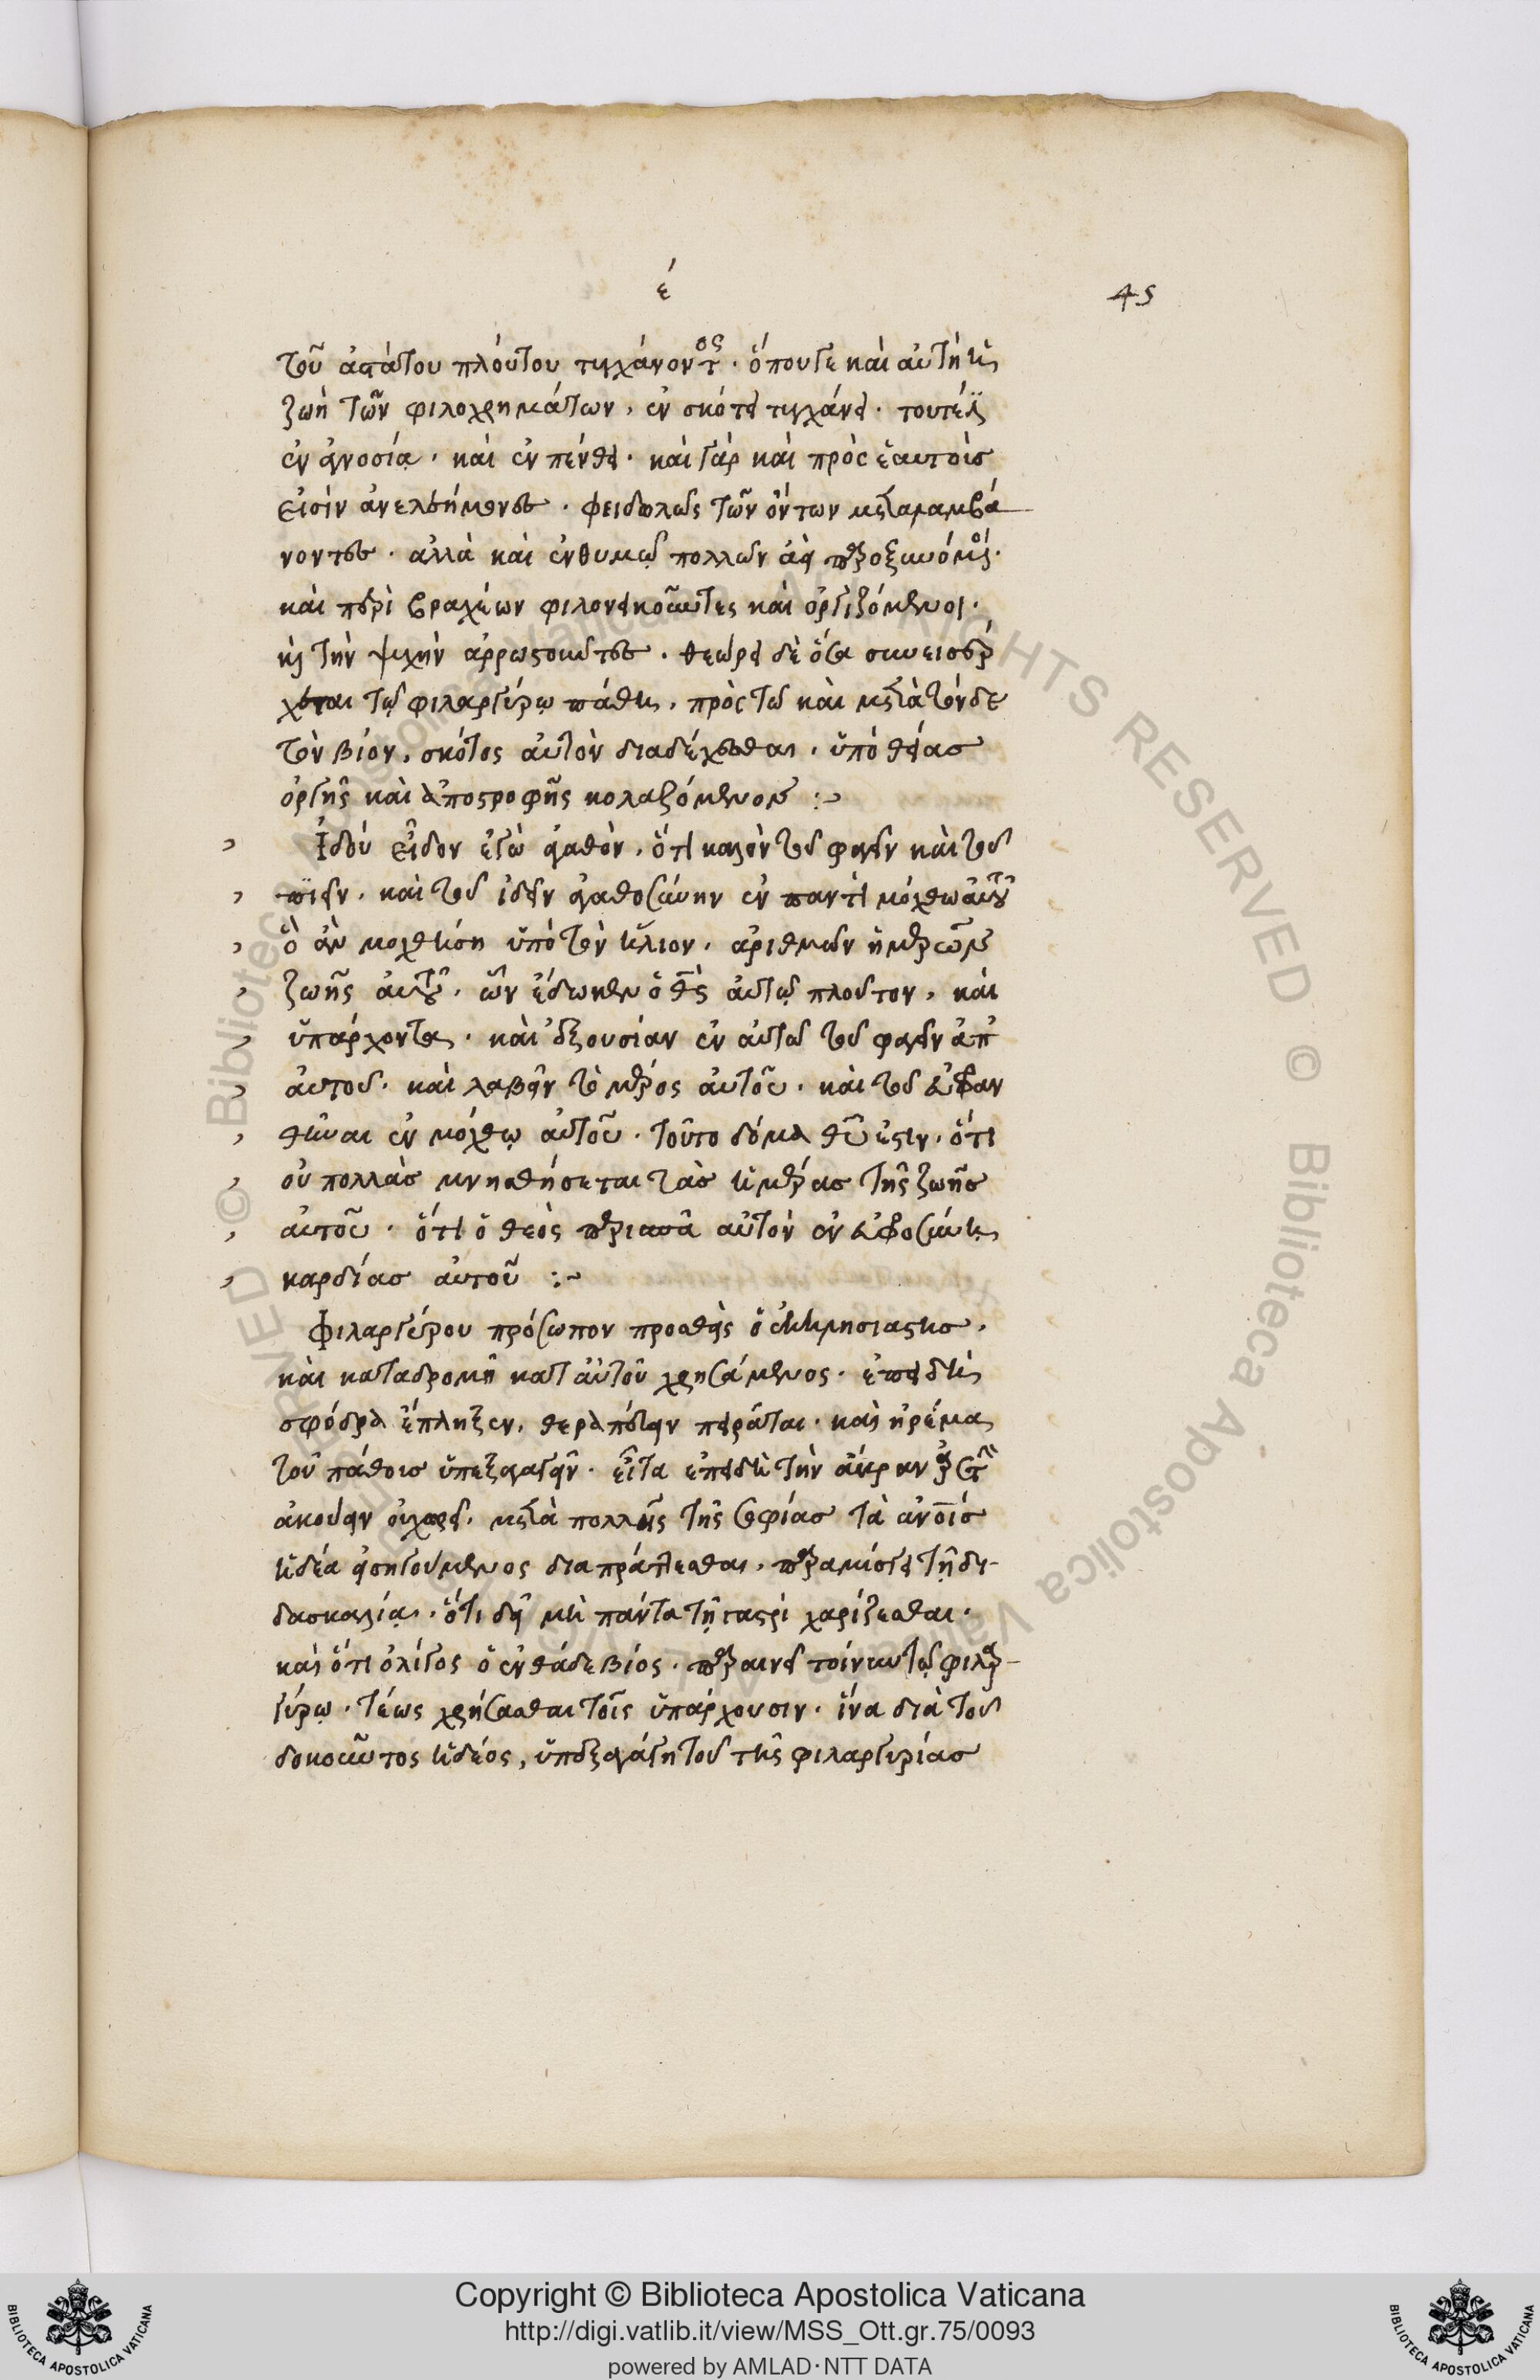 έ
45
τοῦ ἀστάτου πλούτου τυγχάνοντος. ὅπουγε καὶ αὐτὴ ἡ
ζωὴ τῶν φιλοχρημάτων, ἐν σκότει τυγχάνει. τουτέστιν
ἐν ἀγνοσία. καὶ ἐν πένθει. καὶ γὰρ καὶ πρὸς ἑαυτοὶσ
εἰσὶν ἀνελεήμονες. φειδωλῶς τῶν ὄντων μεταλαμβά
νοντες. ἀλλὰ καὶ ἐν θυμῷ πολλῶν ἀεὶ παροξυνόμενοι.
καὶ περὶ βραχέων φιλονεικοῦντες καὶ ὀργιζόμενοι.
καὶ τὴν ψυχὴν ἀρρωστοῦντες. θεώρει δὲ ὅσα συνεισέρ
χεται τῷ φιλαργύρῳ πάθη, πρὸς τῶ καὶ μετὰ τόνδε
τὸν βίον, σκότος αὐτὸν διαδέχεσθαι, ὑπὸ θείασ
ὀργῆς καὶ ἀποστροφῆς κολαζόμενον :~
Ἰδοὺ εἶδον ἐγὼ ἀγαθὸν, ὅτι καλὸν τοῦ φαγεῖν καὶ τοῦ
πιεῖν, καὶ τοῦ ἰδεῖν ἀγαθοσύνην ἐν παντὶ μόχθω αὐτοῦ
ὃ ἂν μοχθήση ὑπὸ τὸν ἥλιον, ἀριθμῶν ἡμερῶν
ζωῆς αὐτοῦ, ὧν ἔδωκεν ὁ θς αὐτῷ πλοῦτον, καὶ
ὑπάρχοντα, καὶ ἐξουσίαν ἐν αὐτῶ τοῦ φαγεῖν ἀπ
αὐτοῦ. καὶ λαβεῖν τὸ μέρος αὐτοῦ. καὶ τοῦ εὐφραν
θῆναι ἐν μόχθῳ αὐτοῦ. τοῦτο δόμα θυ ἐστιν. ὅτι
οὐ πολλὰσ μνησθήσεται τὰσ ἡμέρασ τῆς ζωῆσ
αὐτοῦ. ὅτι ὁ θεὸς περισπᾶ αὐτὸν ἐν εὐφροσύνη
καρδίασ αὐτοῦ :~
Φιλαργύρου πρόσωπον προσθεὶς ὁ ἐκκλησιαστὴσ,
καὶ καταδρομῆ κατ αὐτοῦ χρησάμενος. ἐπειδὴ
σφόδρα ἔπληξεν, θεραπεύειν πειρᾶται. καὶ ἠρέμα
τοῦ πάθουσ ὑπεξαγαγεῖν. εἶτα ἐπειδὴ τὴν ἄκραν
ἀκούειν οὐ χωρεῖ, μετὰ πολλῆς τῆς σοφίασ τὰ
ἡδέα διαπράττεσθαι, παραμίσγει τῆ δι-
δασκαλία. ὅτι δεῖ μὴ πάντα τῆ γαστρὶ χαρίζεσθαι.
καὶ ὅτι ὀλίγος ὁ ἐνθάδε βίος. παραινεῖ τοίνυν τῷ φιλαρ-
γύρω. τέως χρήσασθαι τοῖς ὑπάρχουσιν. ἵνα διὰ τοῦ
δοκοῦντος ἡδέος, ὑπεξαγάγη τοῦ τῆς φιλαργυρίασ
Copyright © Biblioteca Apostolica Vaticana
http://digi.vatlib.it/view/MSS_Ott.gr.75/0093
powered by AMLAD·NTT DATA